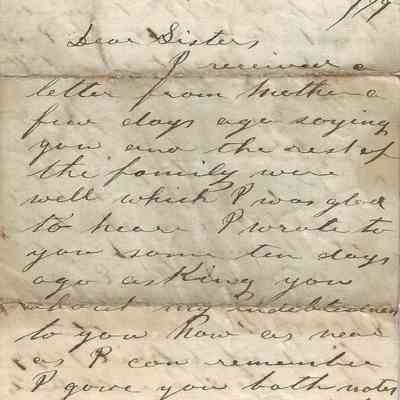 179
Dear Sister,
I received a
letter from Mother a
few days ago saying
you and the rest of
the family were
well which I was glad
to hear I wrote to
you some ten days
ago asKing you
about my indebtedness
to you Now as near
as I can remember
I gave you both notes